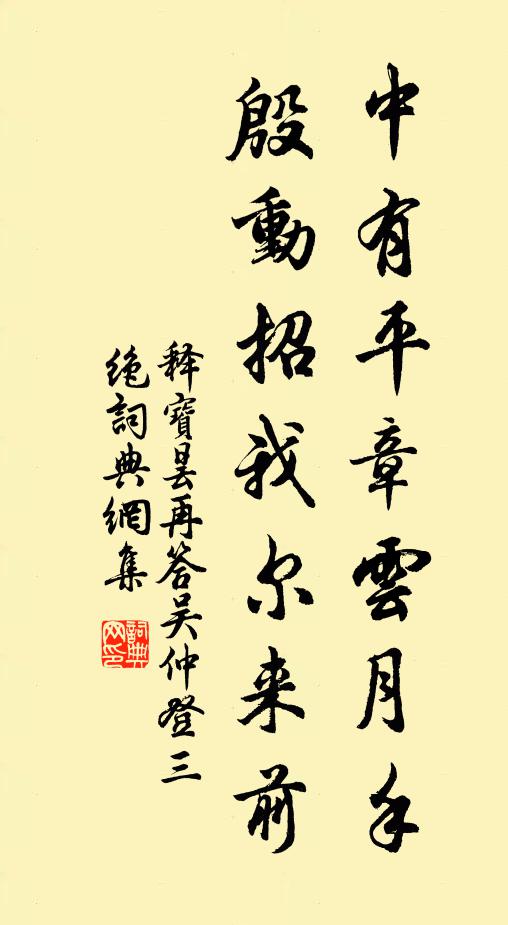 中有平章雲月手
殷動招我尔来前
释寳昙再答吴仲登三
绝詞典網集
詞典
网印